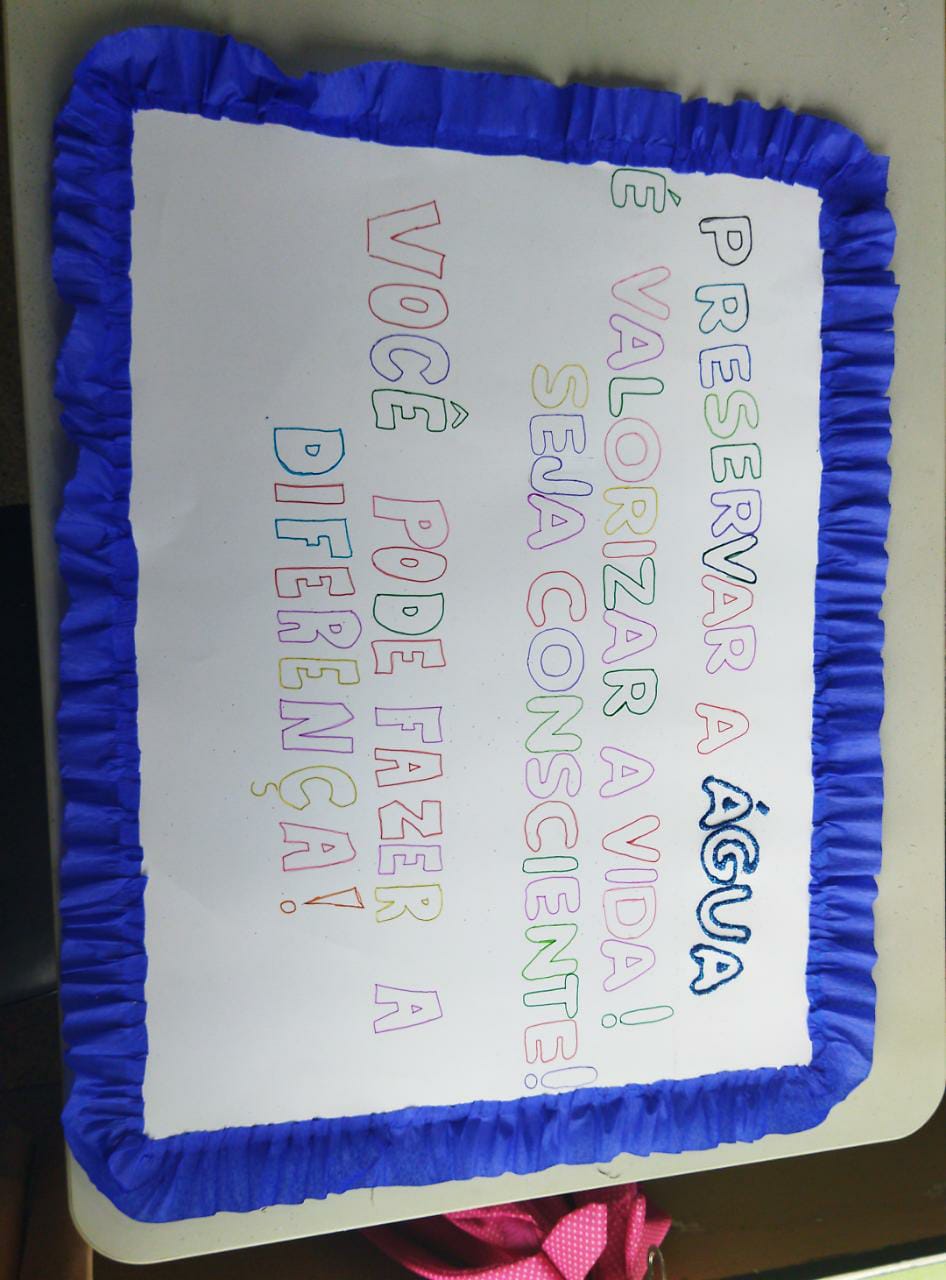 PRESERVAR A ÁGUA
É VALORIZAR A VIDA!
SEJA CONSCIENTE!
VOCÊ PODE FAZER A
DIFERENÇA!